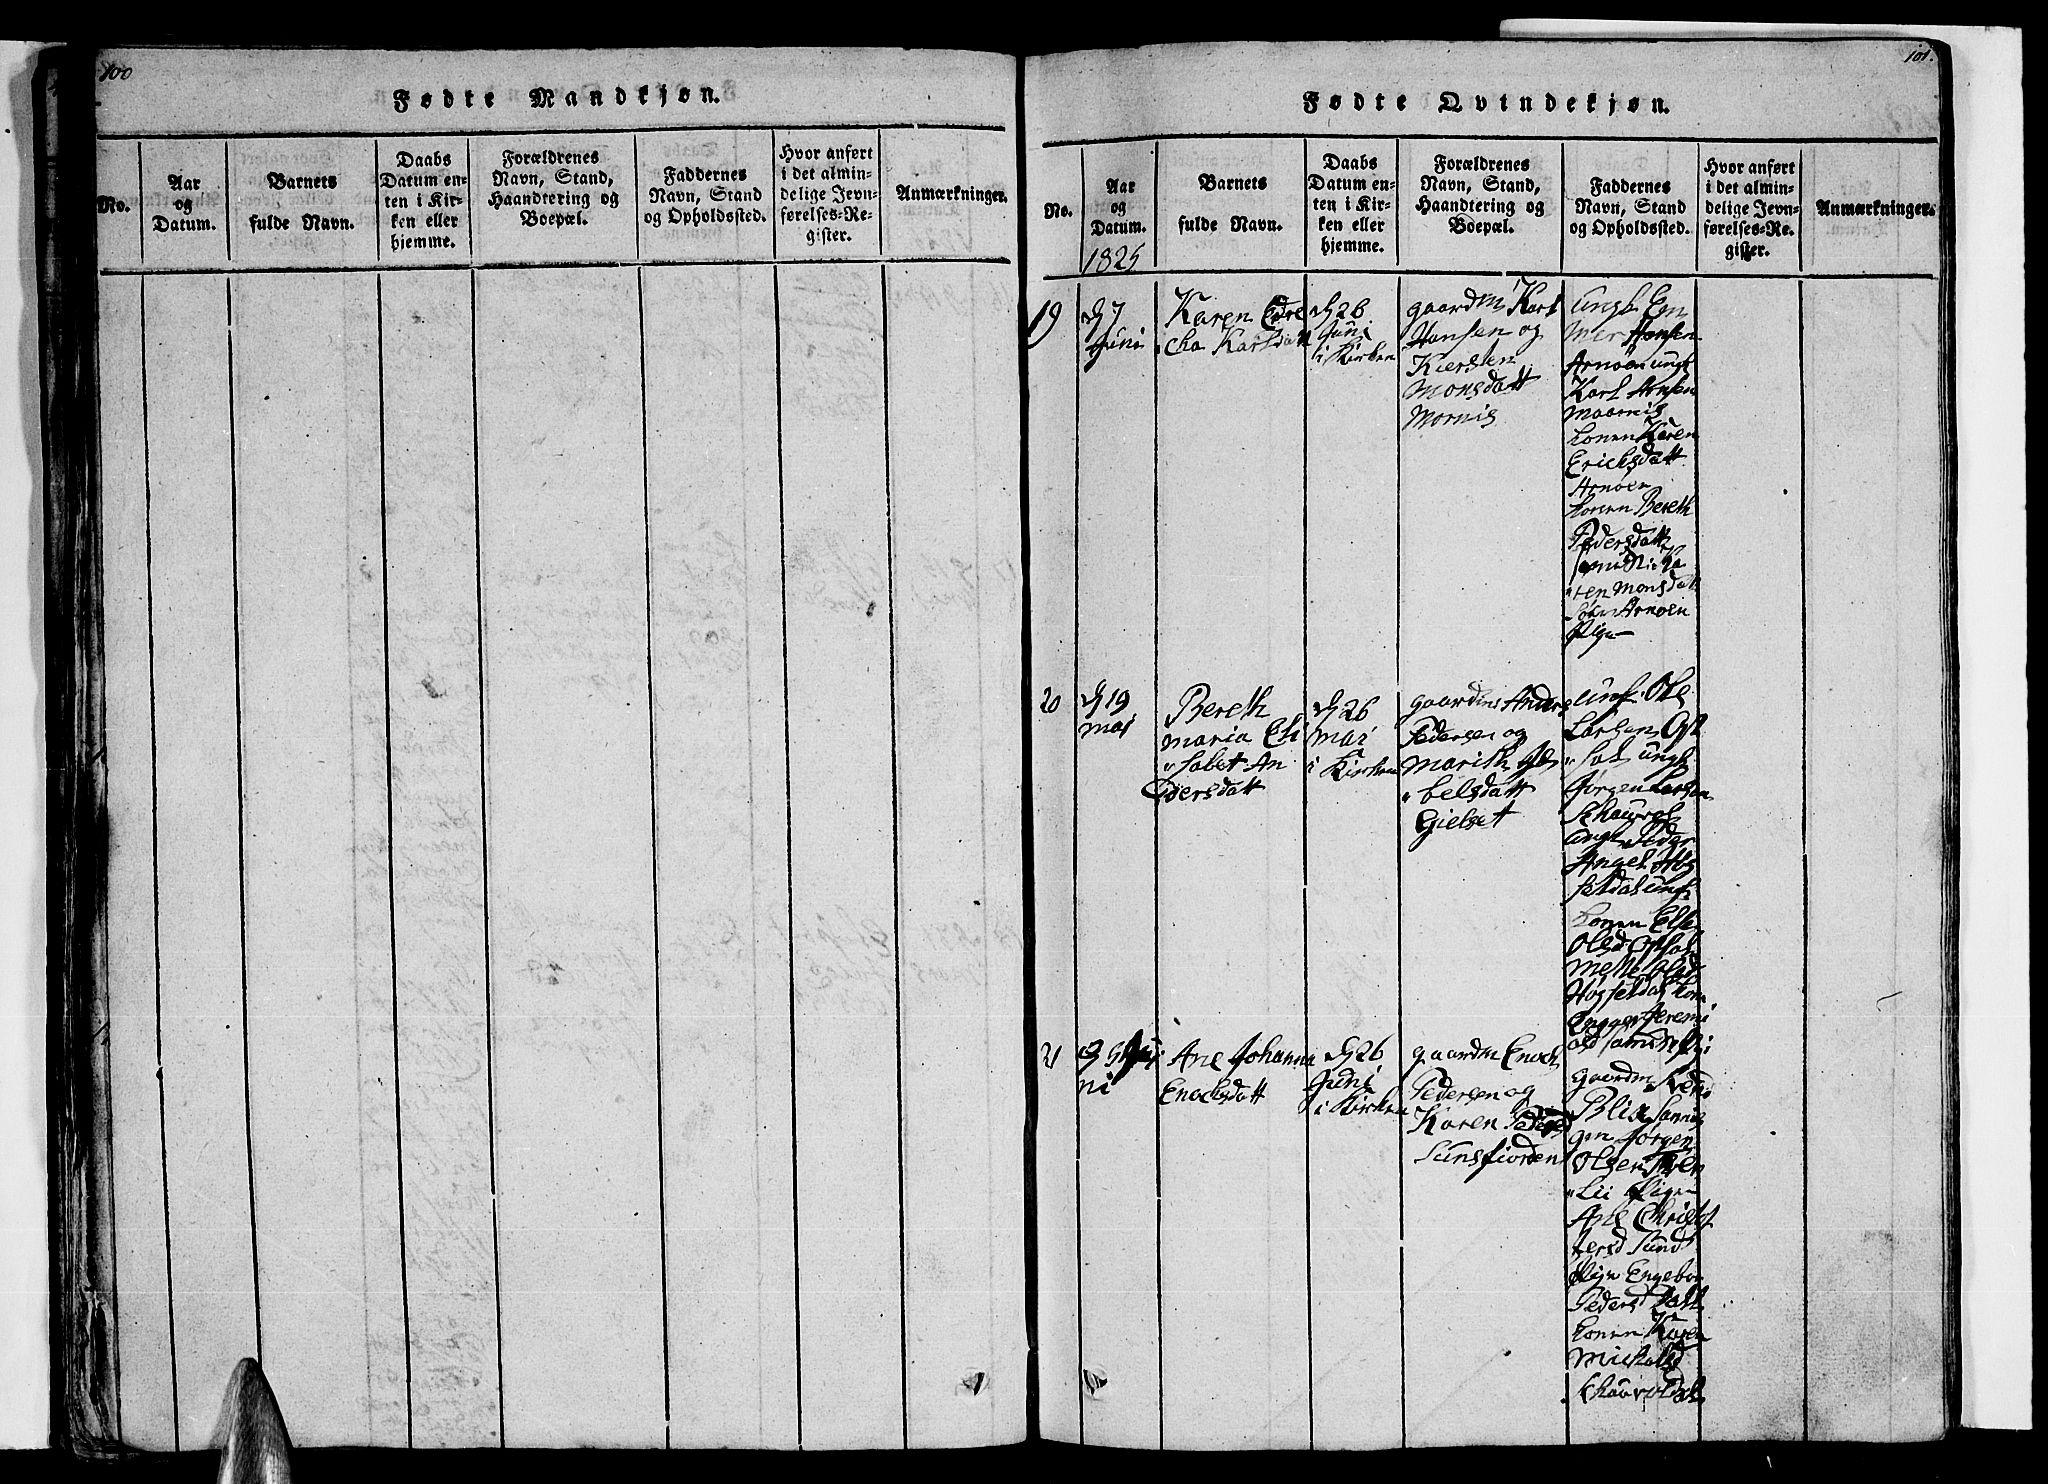 100
Fødte Mandkjøn.
No.
Aar
og
Datum.
Barnets
fulde Navn.
Daabs
Datum en-
ten i Kir-
ken eller
hjemme.
Forældrenes
Navn, Stand,
Haandtering og
Boepæl.
Faddernes
Navn, Stand
og Opholdssted.
Hvor anført
i det almin-
delige Jevn-
førelses-Re-
gister.
Anmærkninger.
101.
Fødte Qvindekjøn.
No.
Aar
og
Datum.
1825
Barnets
fulde Navn.
Daabs
Datum en-
ten i Kir-
ken eller
hjemme.
Forældrenes
Navn, Stand,
Haandtering og
Boepæl.
Faddernes
Navn, Stand
og Opholdsted.
Hvor anført
i det almin-
delige Jevn-
førelses-Re-
gister.
Anmærkninger.
19
7
Juni
Karen
cha Karlsdatt
26
Juni
i Kirken
gaardm Karl
Hansen og
Kiersten
Monsdatt
Mornis
ungk
Hansen
Arnøen ungk
Karl Arnsen
Maarnis
konen Karen
Ericksdatt
Arnøen
konen Bereth
Pedersdatt
ren Monsdatt
Arnøen
Pige
20
19
mai
Bereth
maria Eli
sabet An
dersdatt
26
mai
i Kirken
gaardm Anders
Pedersen og
Marith
belsdatt
Gielset
ungk Ole
Larsen Ops
sal ungk
Jørgen Larsen
ungk Peder
Angel
konen Else
Olsd Opsal
Mette Olsd
21
Juni
Ane Johanna
Enochsdatt
26
Juni
i Kirken
gaardm Enoch
Pedersen og
Karen Pedersd
Sunsfiorden
gaardm
Blix
Jørgen
Olsen
Lii Pigen
Ane Christof
fersd Sund
Pign Engebor
Pedersdatt
konen Karen
Mickalsd